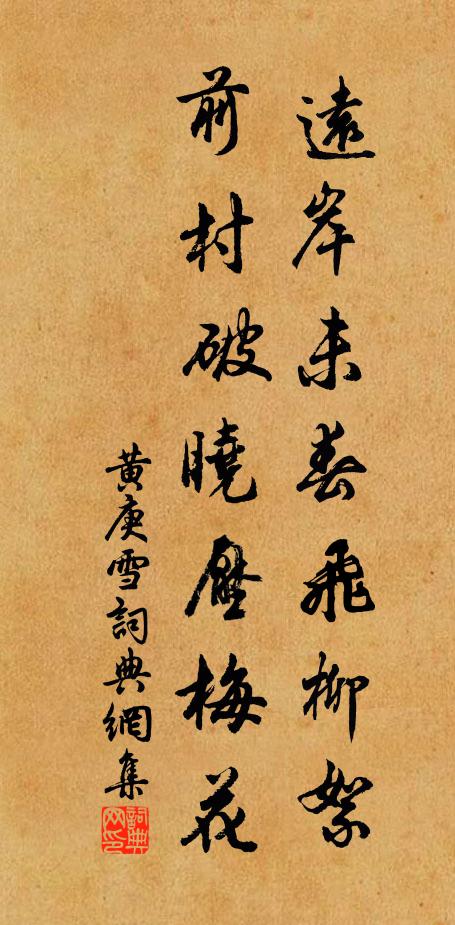 遠岸未春飛柳絮
前村破曉壓梅花
黃庚雪詞典網集
詞典网印